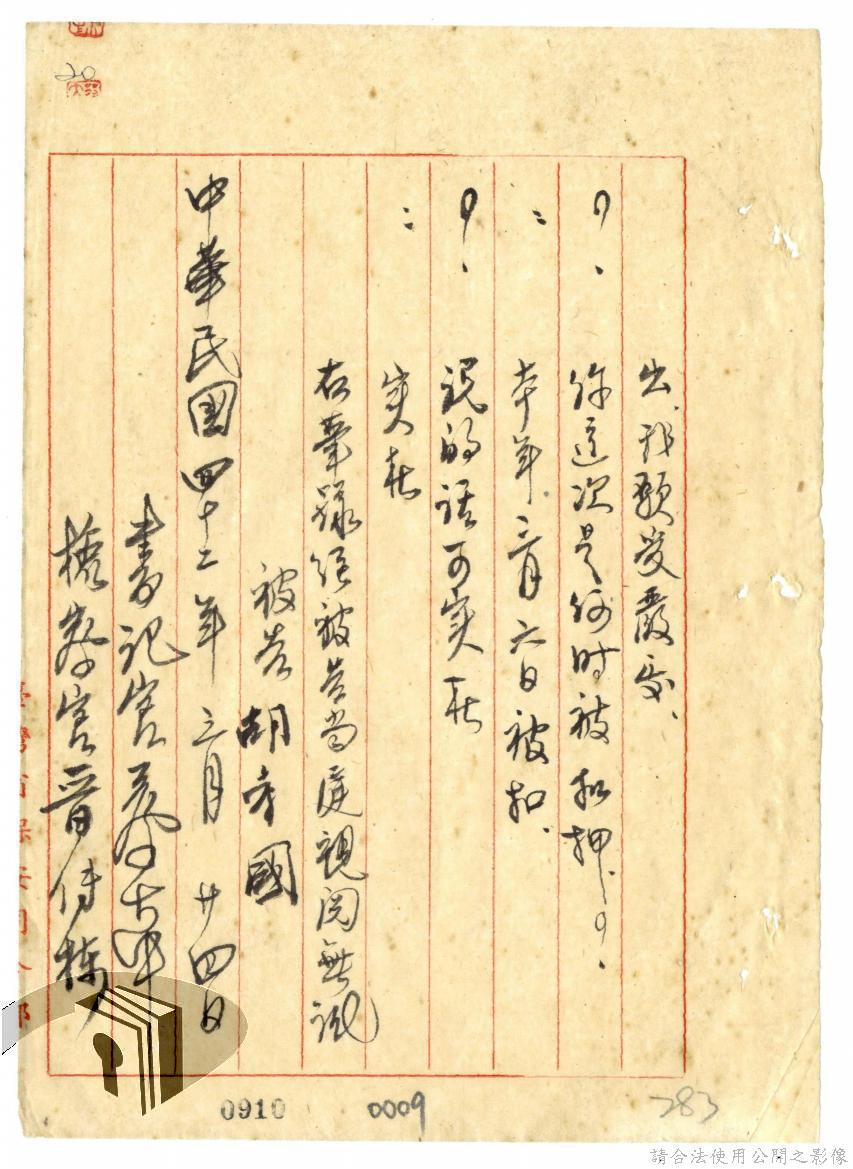 出、我願受嚴處、
?、你這次是何時被扣押、?、
:本年三月六日被扣、
?、說的話可實在
:实在
右筆錄經被告当庭視閱無訛
被告 胡 國
中華民國四十二年 三月 廿四日
書記官
檢察官
臺灣省保安司令部
20
0910
0009
283
請合法使用公開之影像